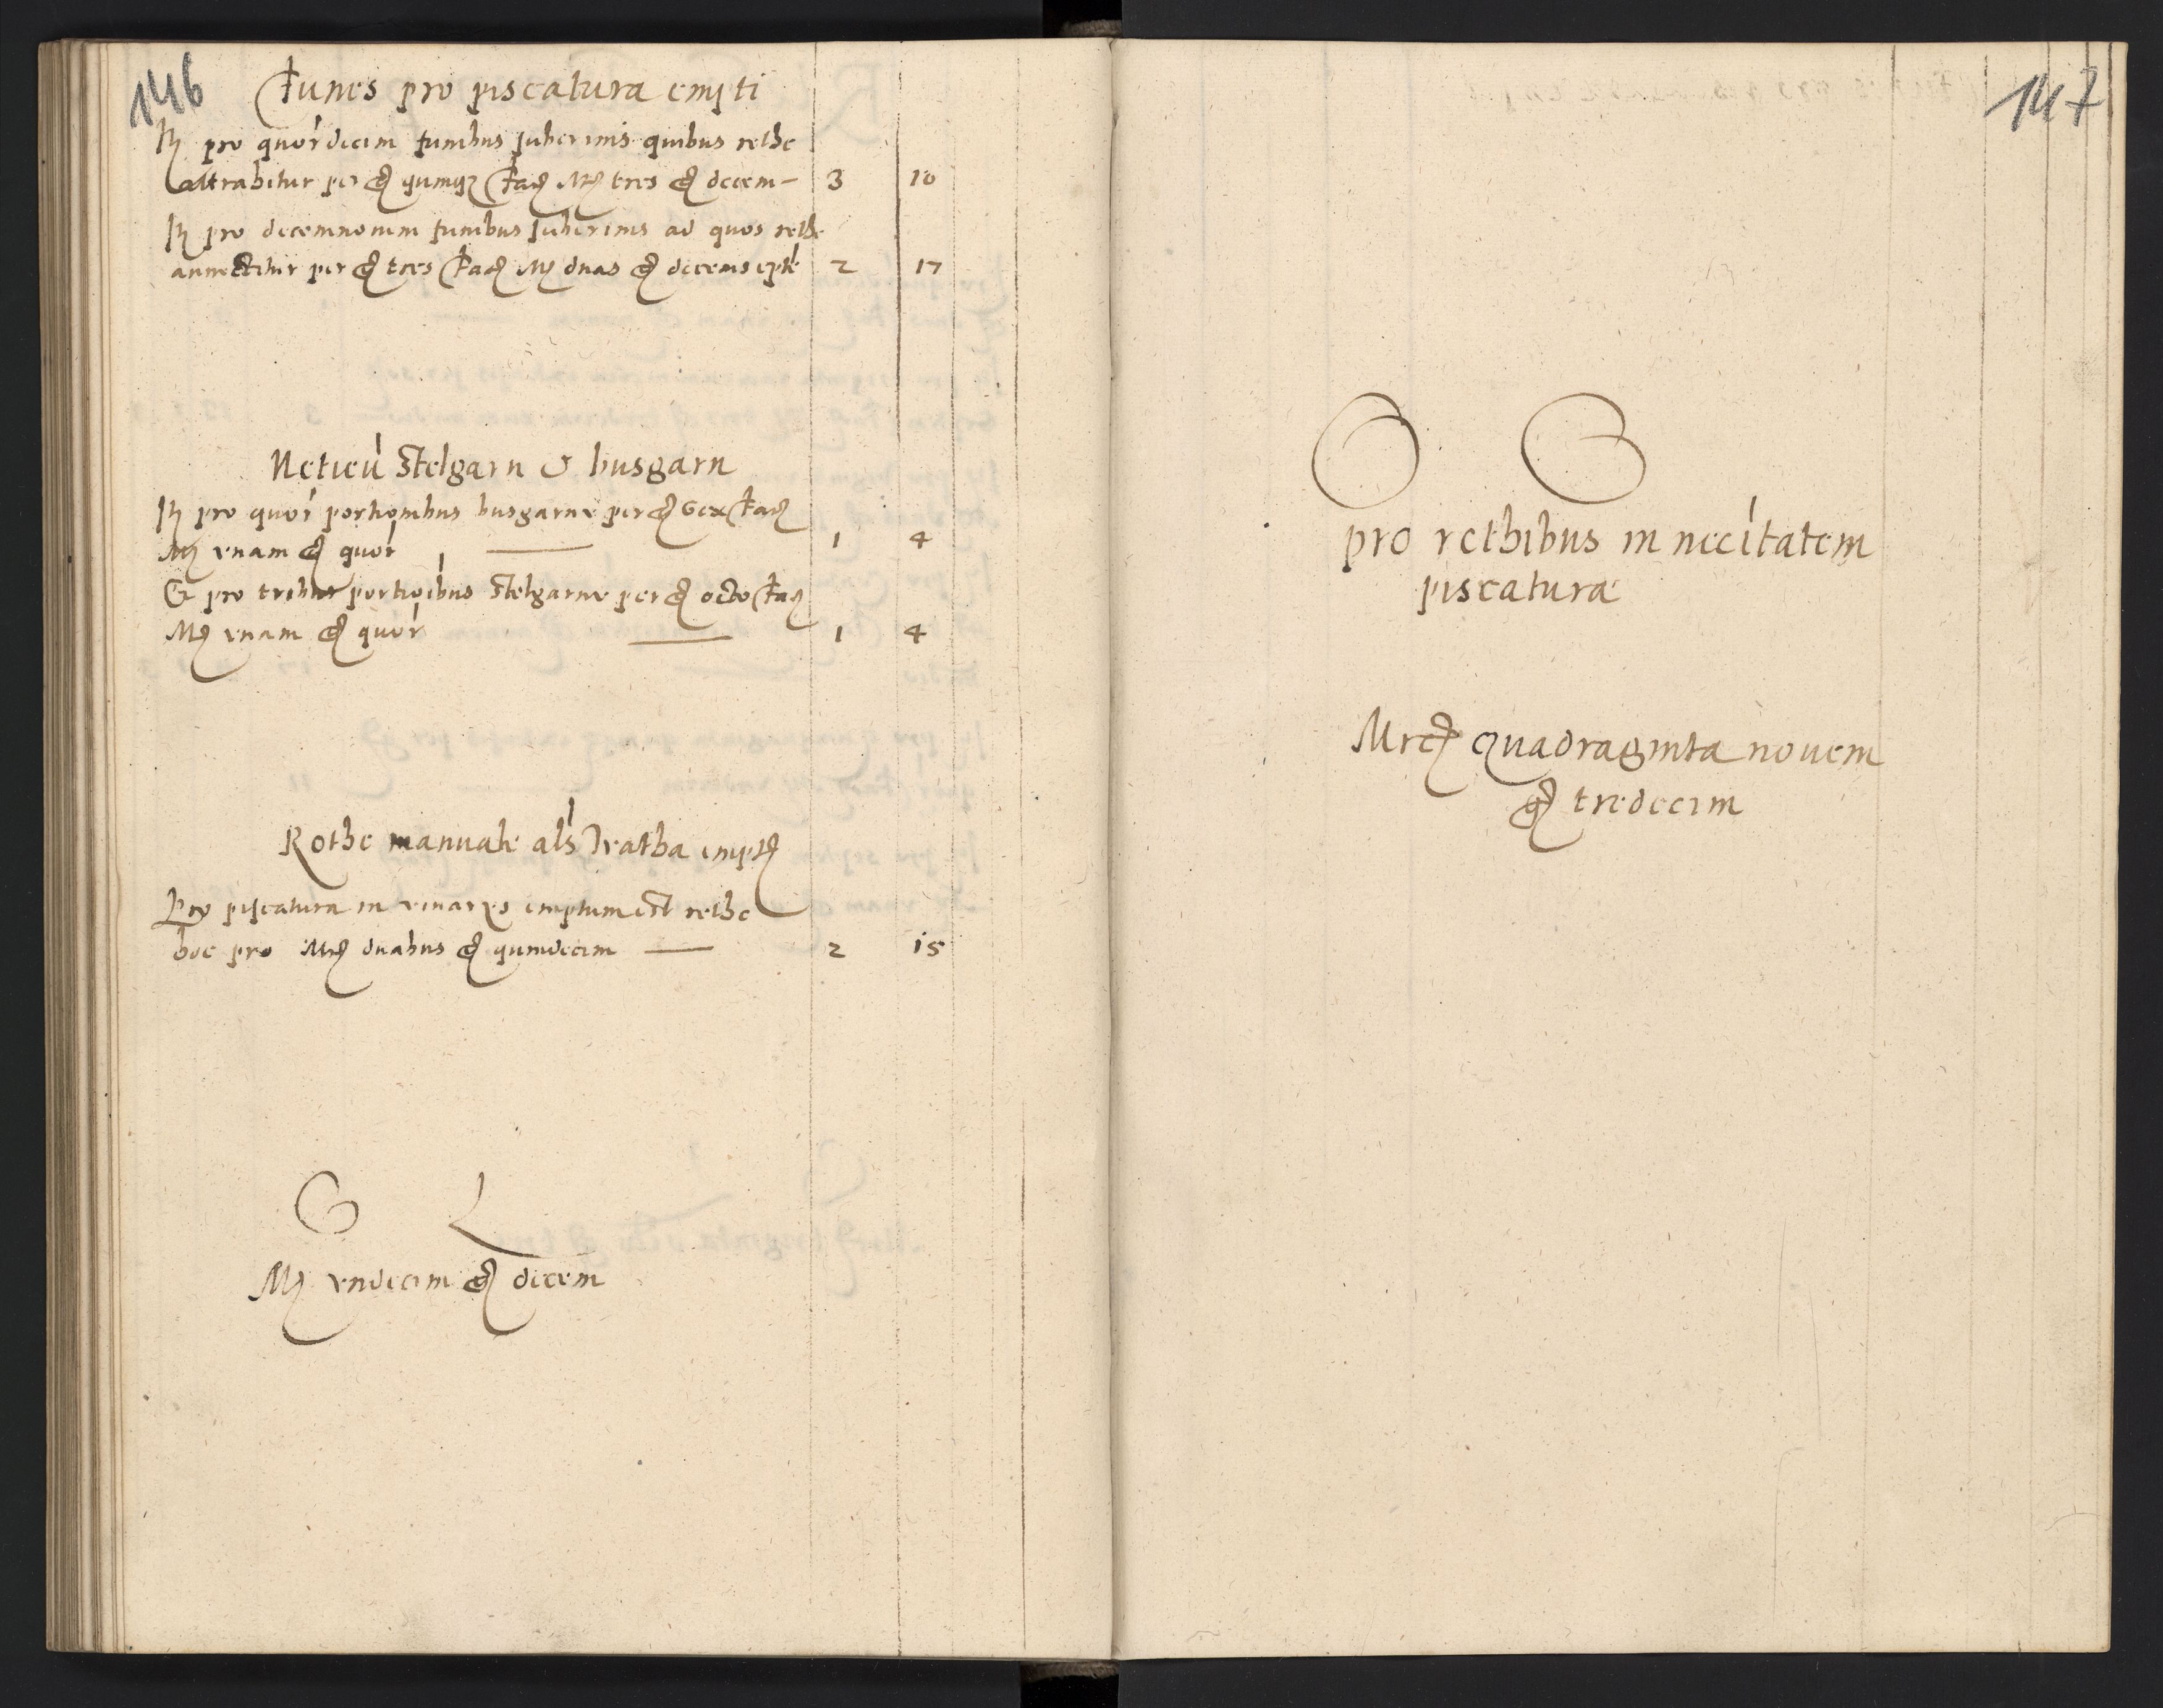 146
Funes pro piscatura empti
It pro quor decim funibus suberinis quibus rethe
attrahitur per gͤ quinqz fac Mr tres gͤ decem — 3 10
It pro decemnovem funibus suberinis ad quos rethe
annectitur per gͤ tres fac Mr duas gͤ decemsepte 2 17
Stelgarn & husgarn
It pro quor portionibus husgarnn per gͤ sex fac
Mr vnam gͤ quor — 1 4
Et pro tribus portioibus Stelgarnn per gͤ octo fac
Mr vnam gͤ quor — 1 4
Rethe manuale als empt
Pro piscatura in emptum est rethe
hoc pro Mr duabus gͤ quindecim — 2 15
S L
Mr vndecim gͤ decem
147
O S
pro rethibus in necitatem
piscatura
Mrc quadraginta novem
gͤ tredecim